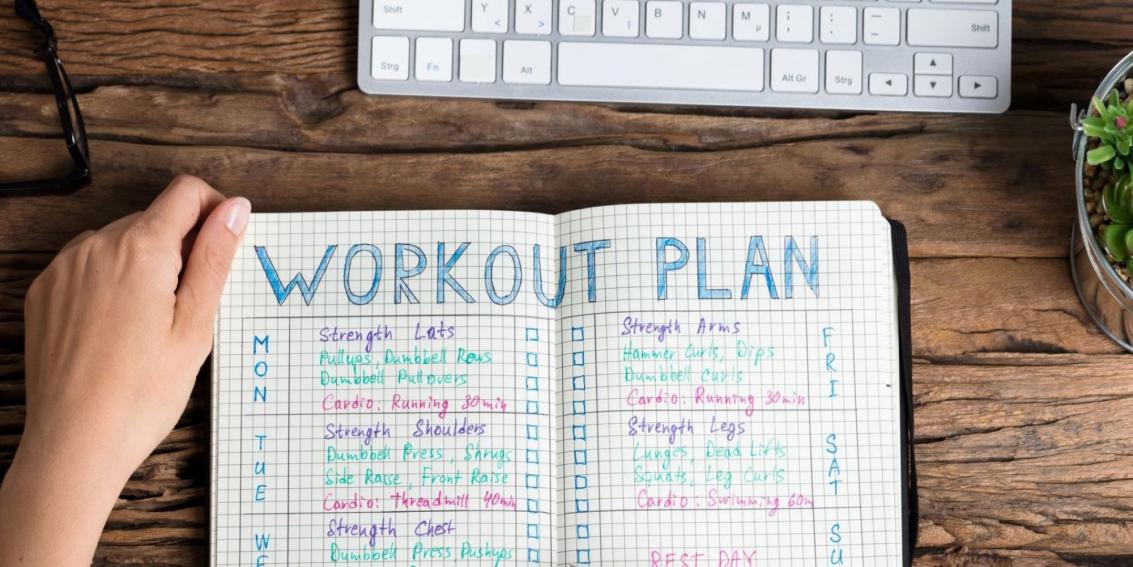 Shift Y < X > C V B N M µ ; , : . _ - Shift
Strg Fn Alt Alt Gr Strg ◄ ▲ ▼ ►
WORKOUT PLAN
MON
Strength Lats
Pullups, Dumbbell Rows
Dumbbell Pullovers
Cardio: Running 30min
TUE
Strength Shoulders
Dumbbell Press, Shrugs
Side Raise, Front Raise
Cardio: Threadmill 40min
WE
Strength Chest
Dumbbell Press Pushups
Strength Arms
Hammer Curls, Dips
Dumbbell Curls
Cardio: Running 30min
FRI
Strength Legs
Lunges, Dead Lifts
Squats, Leg Curls
Cardio: Swimming 60m
SAT
REST DAY
SU